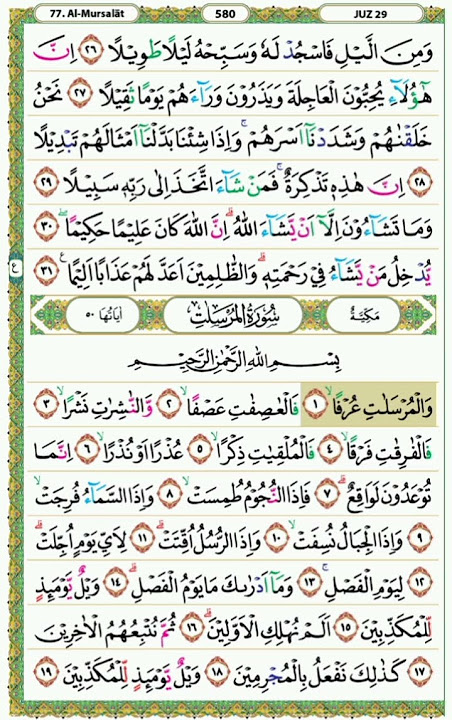 77. Al-Mursalāt 580 JUZ 29
وَمِنَ الَّيْلِ فَاسْجُدْ لَهٗ وَسَبِّحْهُ لَيْلًا طَوِيْلًا ٢٦ اِنَّ
هٰٓؤُلَاۤءِ يُحِبُّوْنَ الْعَاجِلَةَ وَيَذَرُوْنَ وَرَاۤءَهُمْ يَوْمًا ثَقِيْلًا ٢٧ نَحْنُ
خَلَقْنٰهُمْ وَشَدَدْنَآ اَسْرَهُمْۚ وَاِذَا شِئْنَا بَدَّلْنَآ اَمْثَالَهُمْ تَبْدِيْلًا
٢٨ اِنَّ هٰذِهٖ تَذْكِرَةٌۚ فَمَنْ شَاۤءَ اتَّخَذَ اِلٰى رَبِّهٖ سَبِيْلًا ٢٩
وَمَا تَشَاۤءُوْنَ اِلَّآ اَنْ يَّشَاۤءَ اللّٰهُ ۗاِنَّ اللّٰهَ كَانَ عَلِيْمًا حَكِيْمًاۖ ٣٠
يُّدْخِلُ مَنْ يَّشَاۤءُ فِيْ رَحْمَتِهٖۗ وَالظّٰلِمِيْنَ اَعَدَّ لَهُمْ عَذَابًا اَلِيْمًا ࣖ ٣١
ع
مَكِّيَّةٌ سُوْرَةُ الْمُرْسَلٰت اٰيَاتُهَا ٥٠
بِسْمِ اللّٰهِ الرَّحْمٰنِ الرَّحِيْمِ
وَالْمُرْسَلٰتِ عُرْفًاۙ ١ فَالْعٰصِفٰتِ عَصْفًاۙ ٢ وَّالنّٰشِرٰتِ نَشْرًاۙ ٣
فَالْفٰرِقٰتِ فَرْقًاۙ ٤ فَالْمُلْقِيٰتِ ذِكْرًاۙ ٥ عُذْرًا اَوْ نُذْرًاۙ ٦ اِنَّمَا
تُوْعَدُوْنَ لَوَاقِعٌۗ ٧ فَاِذَا النُّجُوْمُ طُمِسَتْۙ ٨ وَاِذَا السَّمَاۤءُ فُرِجَتْۙ
٩ وَاِذَا الْجِبَالُ نُسِفَتْۙ ١٠ وَاِذَا الرُّسُلُ اُقِّتَتْۗ ١١ لِاَيِّ يَوْمٍ اُجِّلَتْۗ
١٢ لِيَوْمِ الْفَصْلِۚ ١٣ وَمَآ اَدْرٰىكَ مَا يَوْمُ الْفَصْلِۗ ١٤ وَيْلٌ يَّوْمَىِٕذٍ
لِّلْمُكَذِّبِيْنَ ١٥ اَلَمْ نُهْلِكِ الْاَوَّلِيْنَۗ ١٦ ثُمَّ نُتْبِعُهُمُ الْاٰخِرِيْنَ
١٧ كَذٰلِكَ نَفْعَلُ بِالْمُجْرِمِيْنَ ١٨ وَيْلٌ يَّوْمَىِٕذٍ لِّلْمُكَذِّبِيْنَ ١٩